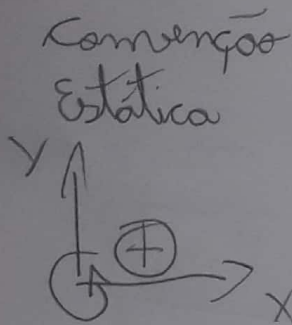 Convenção
Estática
Y
+
X